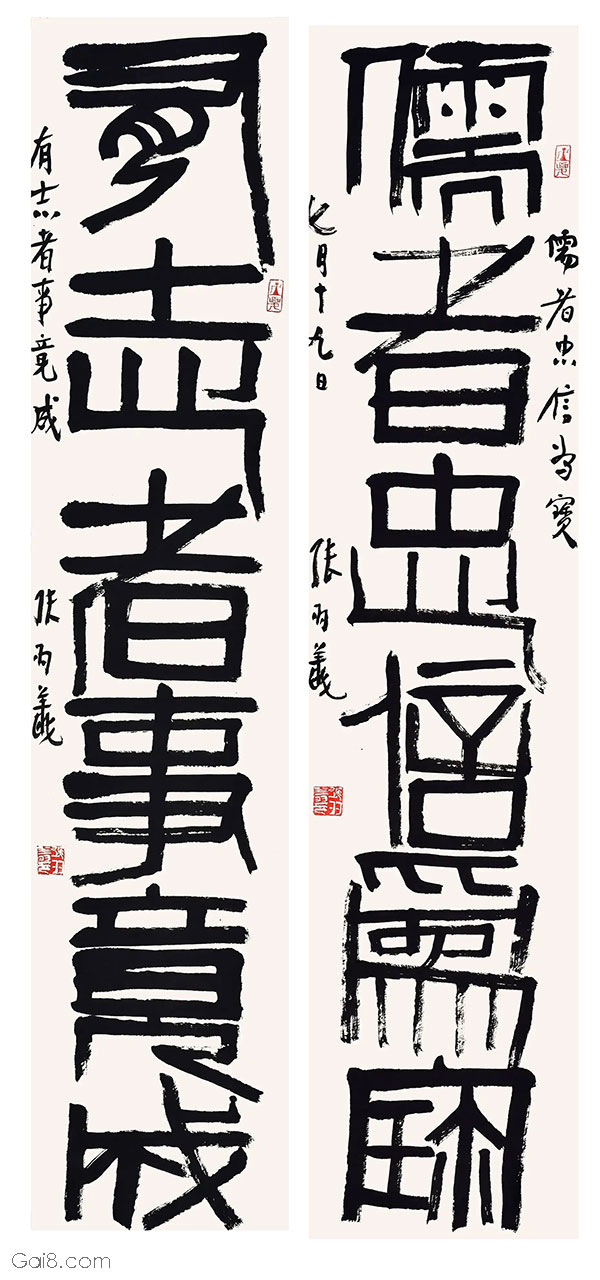 儒者忠信為寶
儒者忠信為寶
七月十九日
有志者事竟成
有志者事竟成
Gai8.com